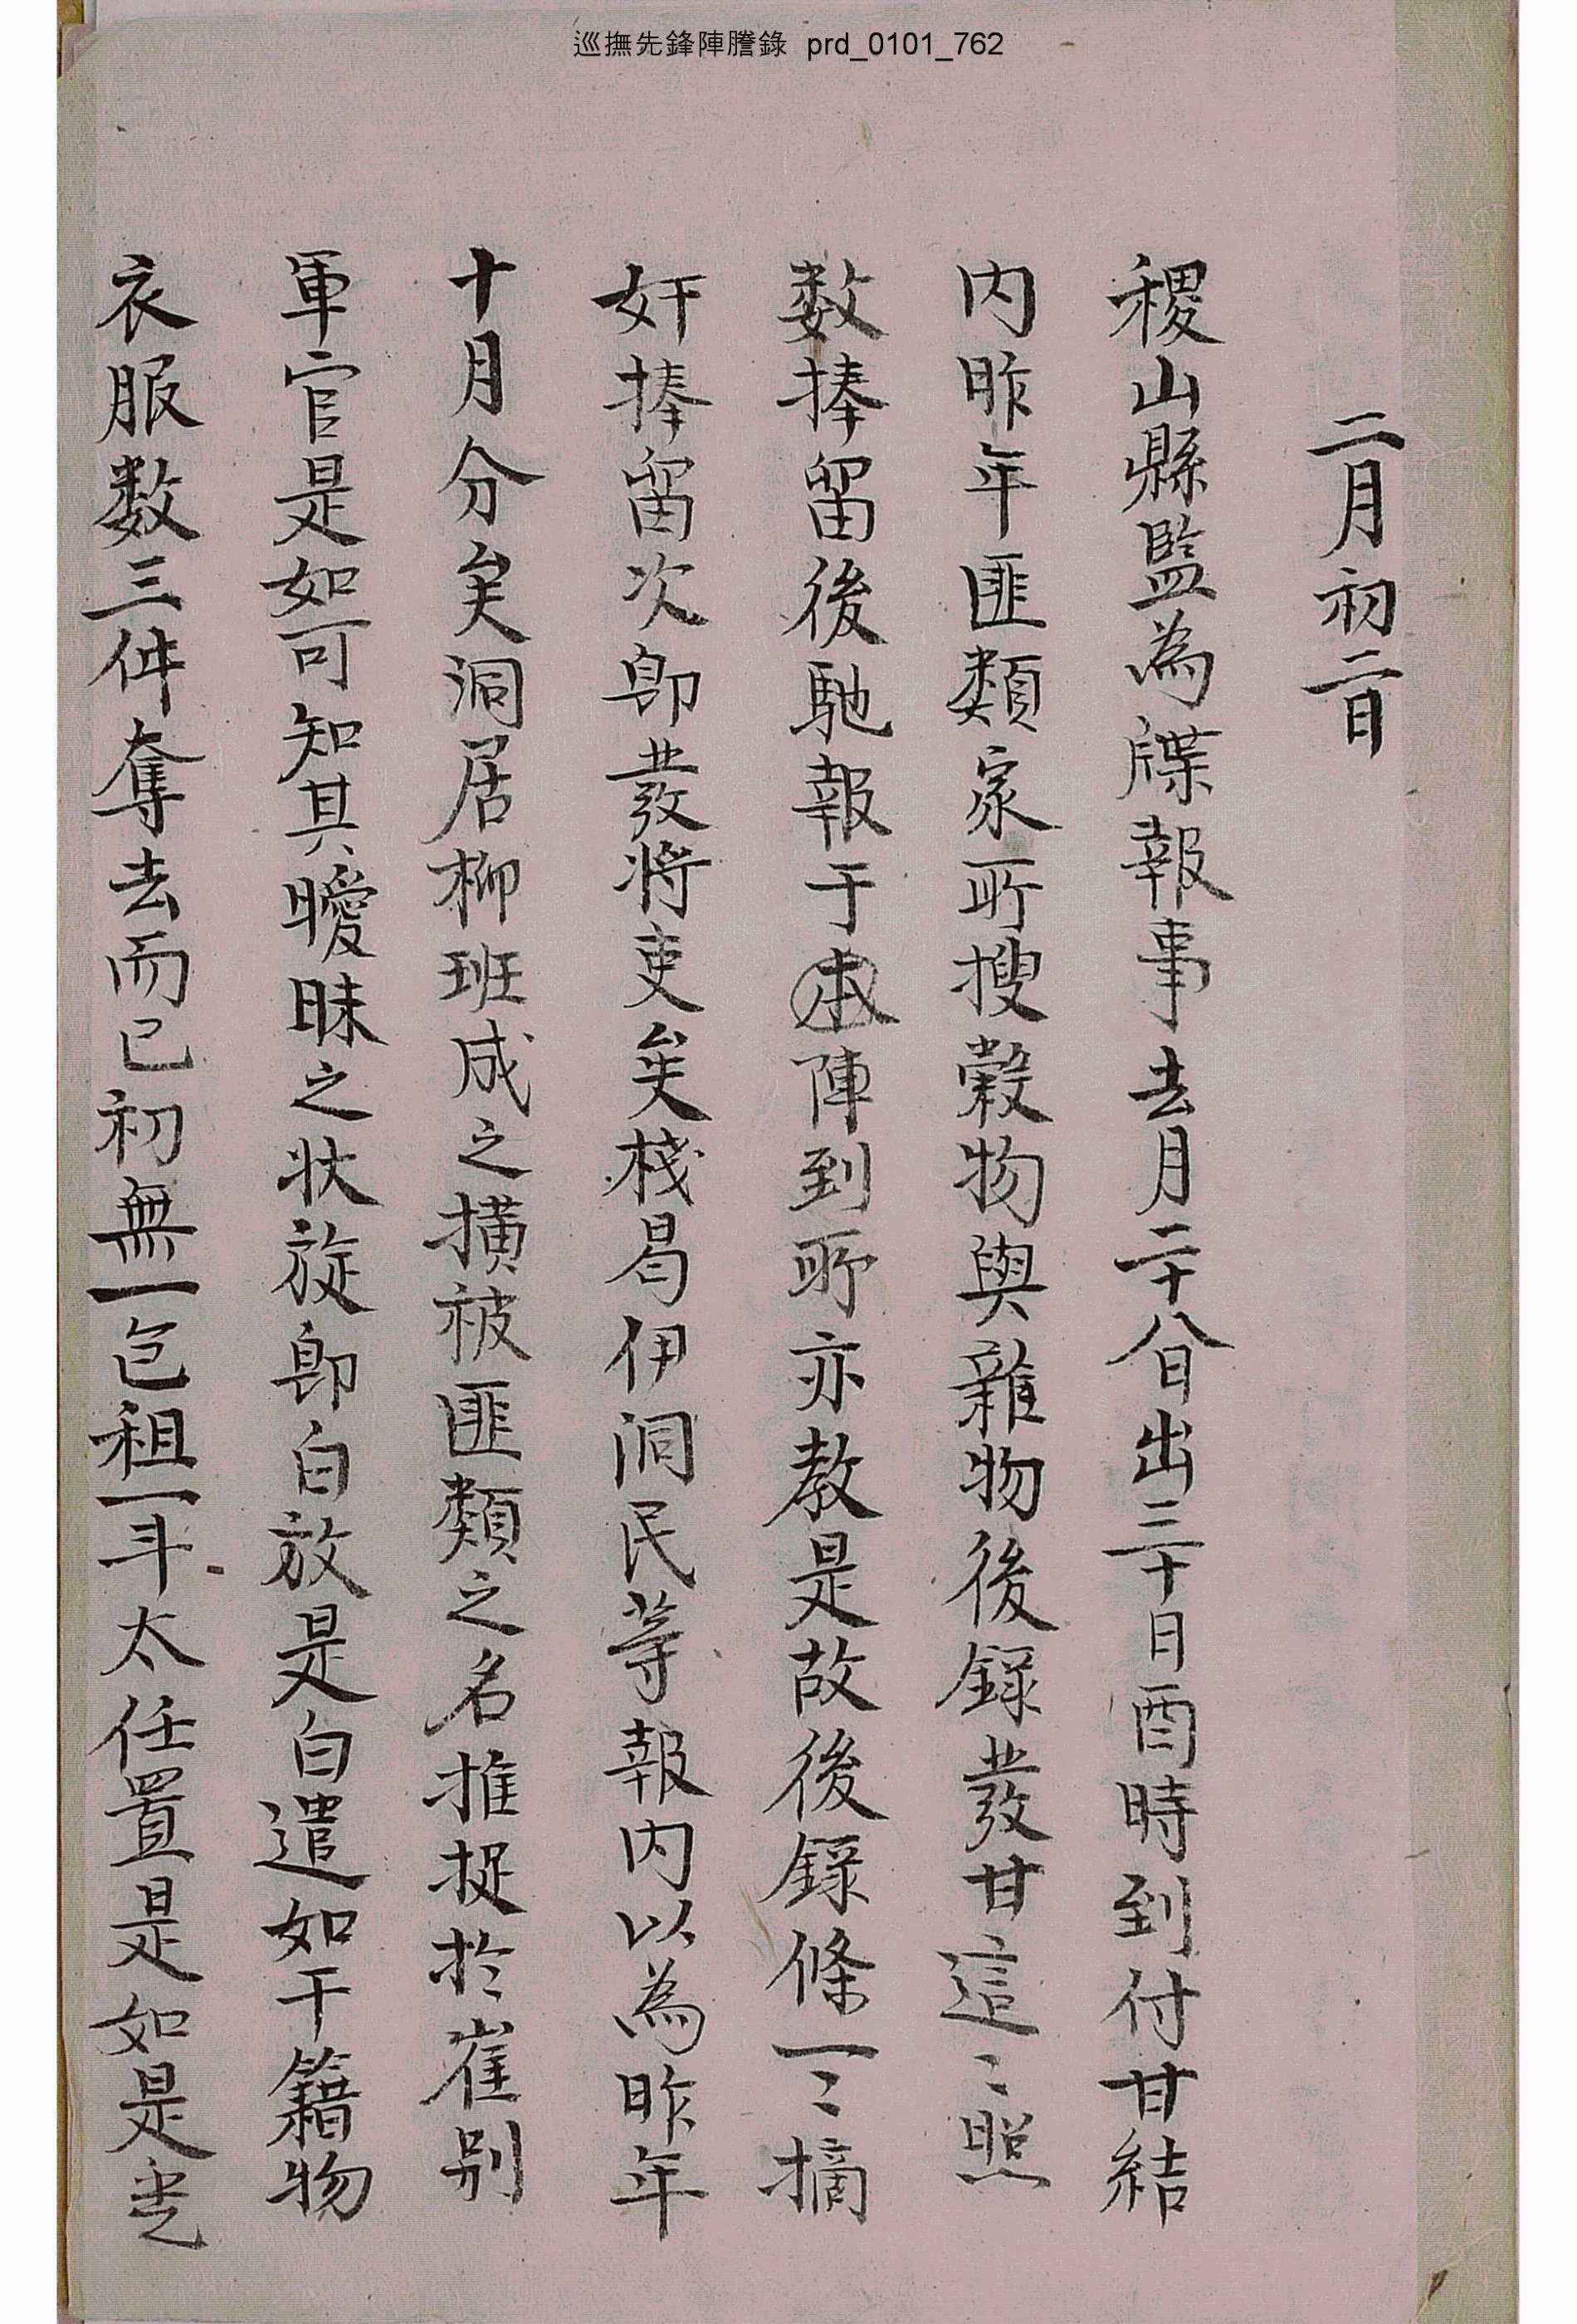 巡撫先鋒陣謄錄 prd_0101_762
二月初二日
稷山縣監為牒報事去月二十八日出三十日酉時到付甘結
内昨年匪類家所搜穀物與雜物後錄發甘這〻照
数捧留後馳報于本陣到所亦教是故後錄條一〻摘
奸捧留次卽發將吏矣棧曷伊洞民等報内以為昨年
十月分矣洞居柳班成之橫被匪類之名推捉於崔別
軍官是如可知其曖昧之状旋卽白放是白遣如干籍物
衣服数三件奪去而已初無一包租一斗太任置是如是